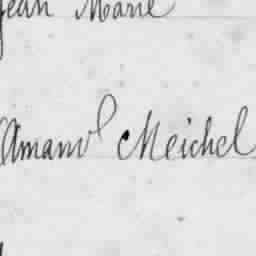 Jean Marie
Amand Meichel